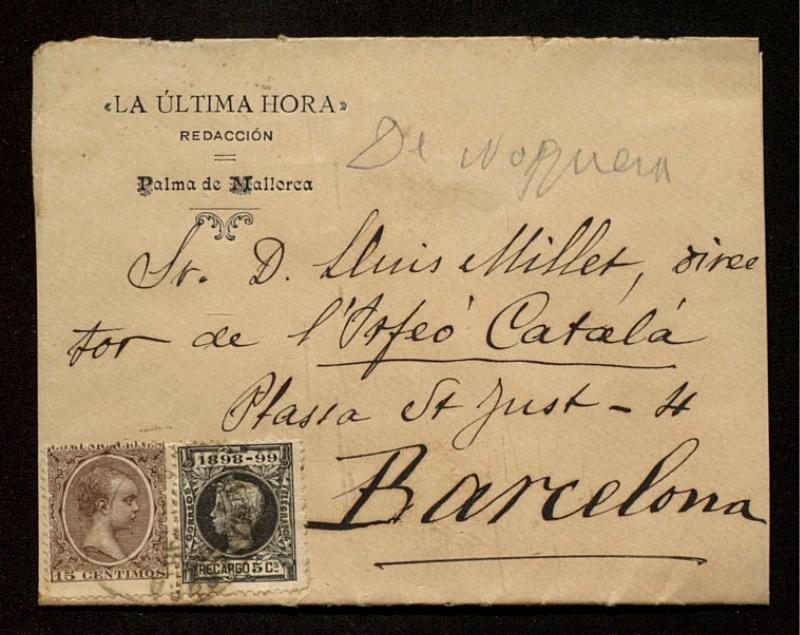 «LA ÚLTIMA HORA»
REDACCIÓN
Palma de Mallorca
De Noguera
Sr. D. Lluis Millet, direc
tor de l'Orfeó Catalá
Plassa St Just - 4
Barcelona
15 CENTIMOS
1898-99
CORREOS
RECARGO 5 Cs